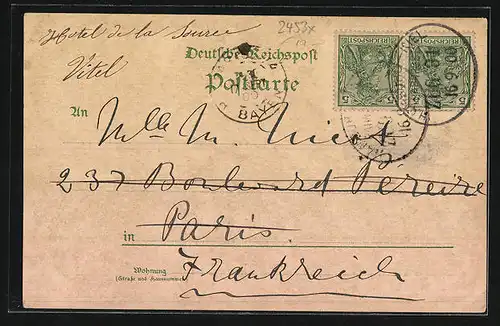 Hotel de la Source
2453x
Vitel
Deutsche Reichspost
Postkarte
An
Mlle M.
237 Boulevard Pereire
in Paris
Frankreich
Wohnung
(Straße und Hausnummer)
REICHSPOST
5 5
REICHSPOST
16 9.00
BAYERN